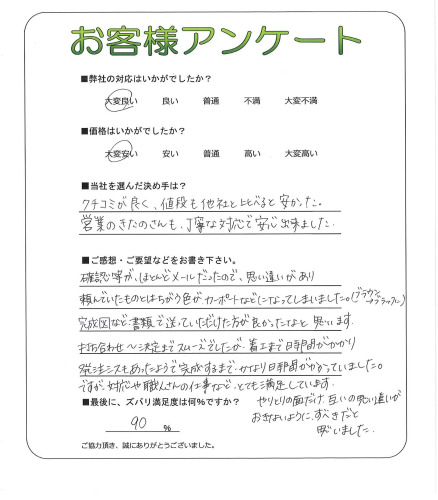 お客様アンケート
■弊社の対応はいかがでしたか？
大変良い　良い　普通　不満　大変不満
■価格はいかがでしたか？
大変安い　安い　普通　高い　大変高い
■当社を選んだ決め手は？
クチコミが良く、値段も他社と比べると安かった。
営業のきたのさんも、丁寧な対応で安心出来ました。
■ご感想・ご要望などをお書き下さい。
確認等が、ほとんどメールだったので、思い違いがあり
頼んでいたものとはちがう色がカーポートなどになってしまいました。(ブラウン→ブラック)
完成図など書類で送っていただけた方が良かったなと思います。
打ち合わせ〜決定までスムーズでしたが、着工まで日時間がかかり
発注ミスもあったようで完成するまで、かなり日時間がかかっていました。
ですが、対応や職人さんの仕事など、とても満足しています。
やりとりの面だけ、互いの思い違いが
おきないように、すべきだと
思いました。
■最後に、ズバリ満足度は何%ですか？
90 %
ご協力頂き、誠にありがとうございました。